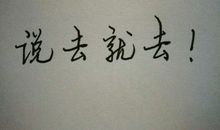 说去就去！